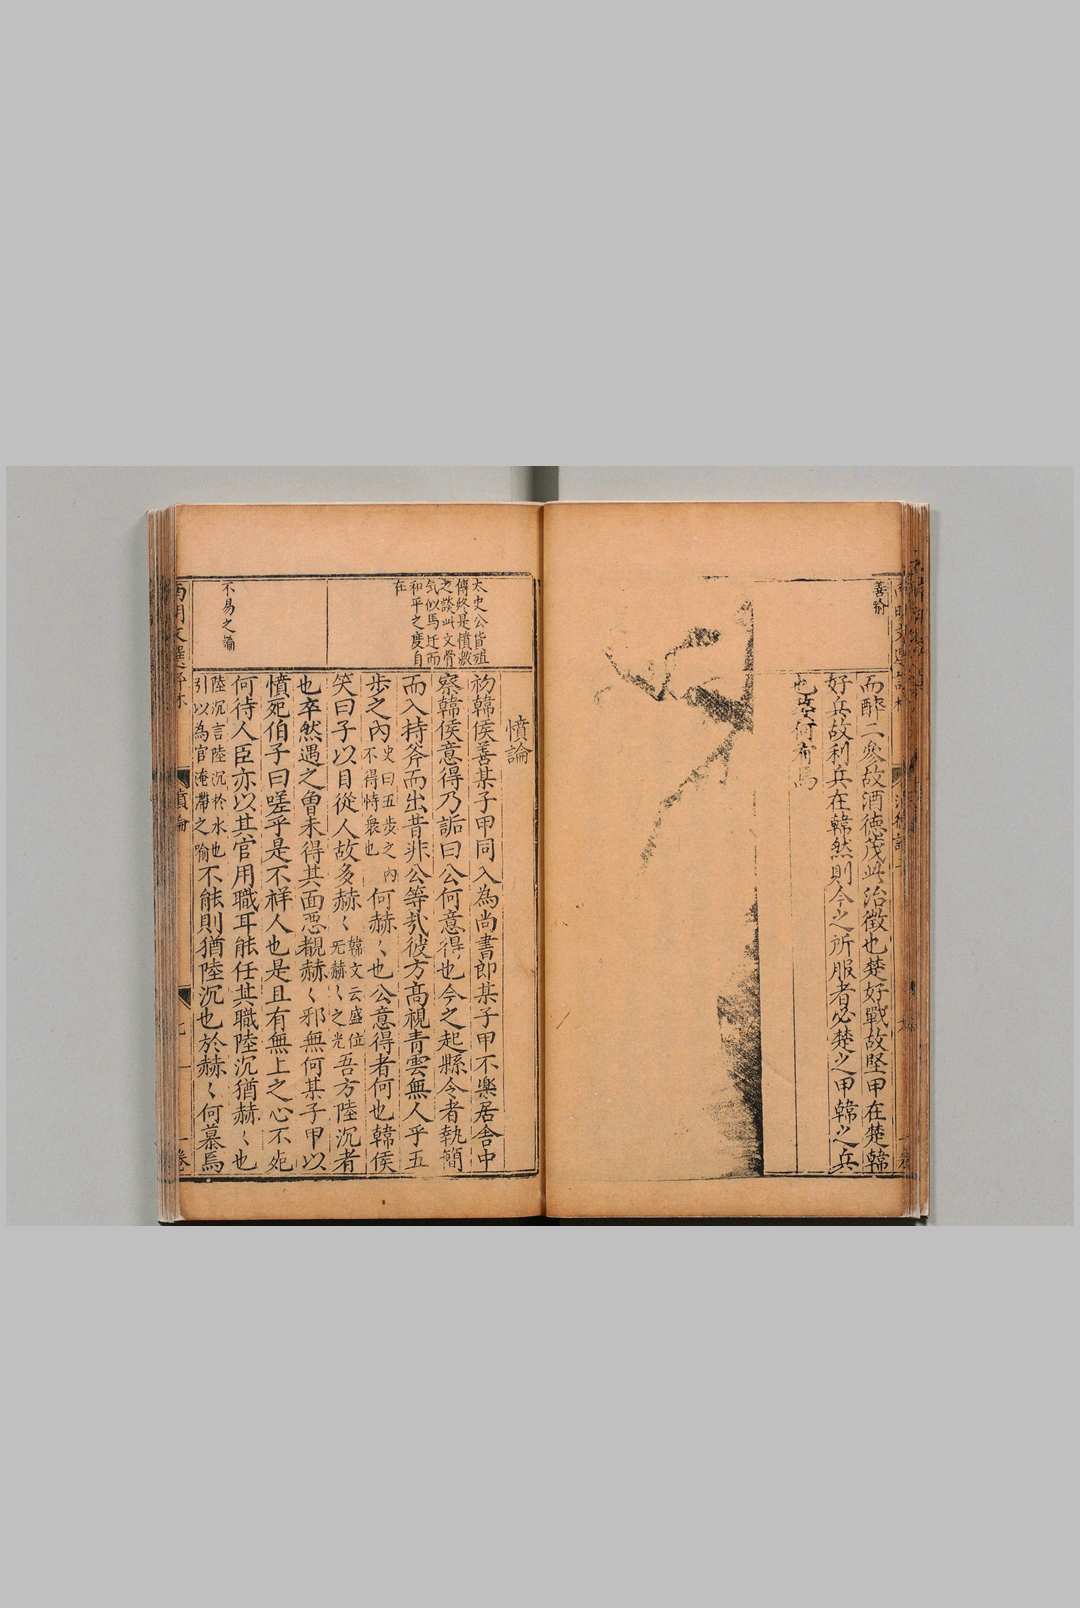 善喻
而醉二參故酒德茂此治徵也楚好戰故堅甲在楚韓
好兵故利兵在韓然則今之所服者必楚之甲韓之兵
也吏何有焉
太史公貨殖
傳終是憤激
之談此文骨
氣似馬迁而
和平之度自
在
不易之論
憤論
初韓侯善某子甲同入為尚書郎某子甲不樂居舍中
察韓侯意得乃詬曰公何意得也今之起縣令者執簡
而入持斧而出昔非公等㢤彼方高視青雲無人乎五
步之內
史曰五步之內
不得恃衆也
何赫〻也公意得者何也韓侯
笑曰子以目從人故多赫〻
韓文云盛位
无赫〻之光
吾方陸沉者
也卒然遇之曾未得其面惡覩赫〻邪無何某子甲以
憤死伯子曰嗟乎是不祥人也是且有無上之心不死
何待人臣亦以其官用職耳能任其職陸沉猶赫〻也
陸沉言陸沉於水也
引以為官淹滯之喻
不能則猶陸沉也於赫〻何慕焉
憤論
七